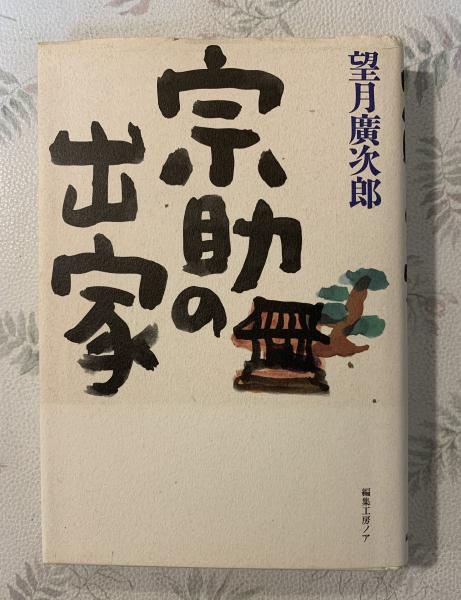 望月廣次郎
宗助の
出家
編集工房ノア